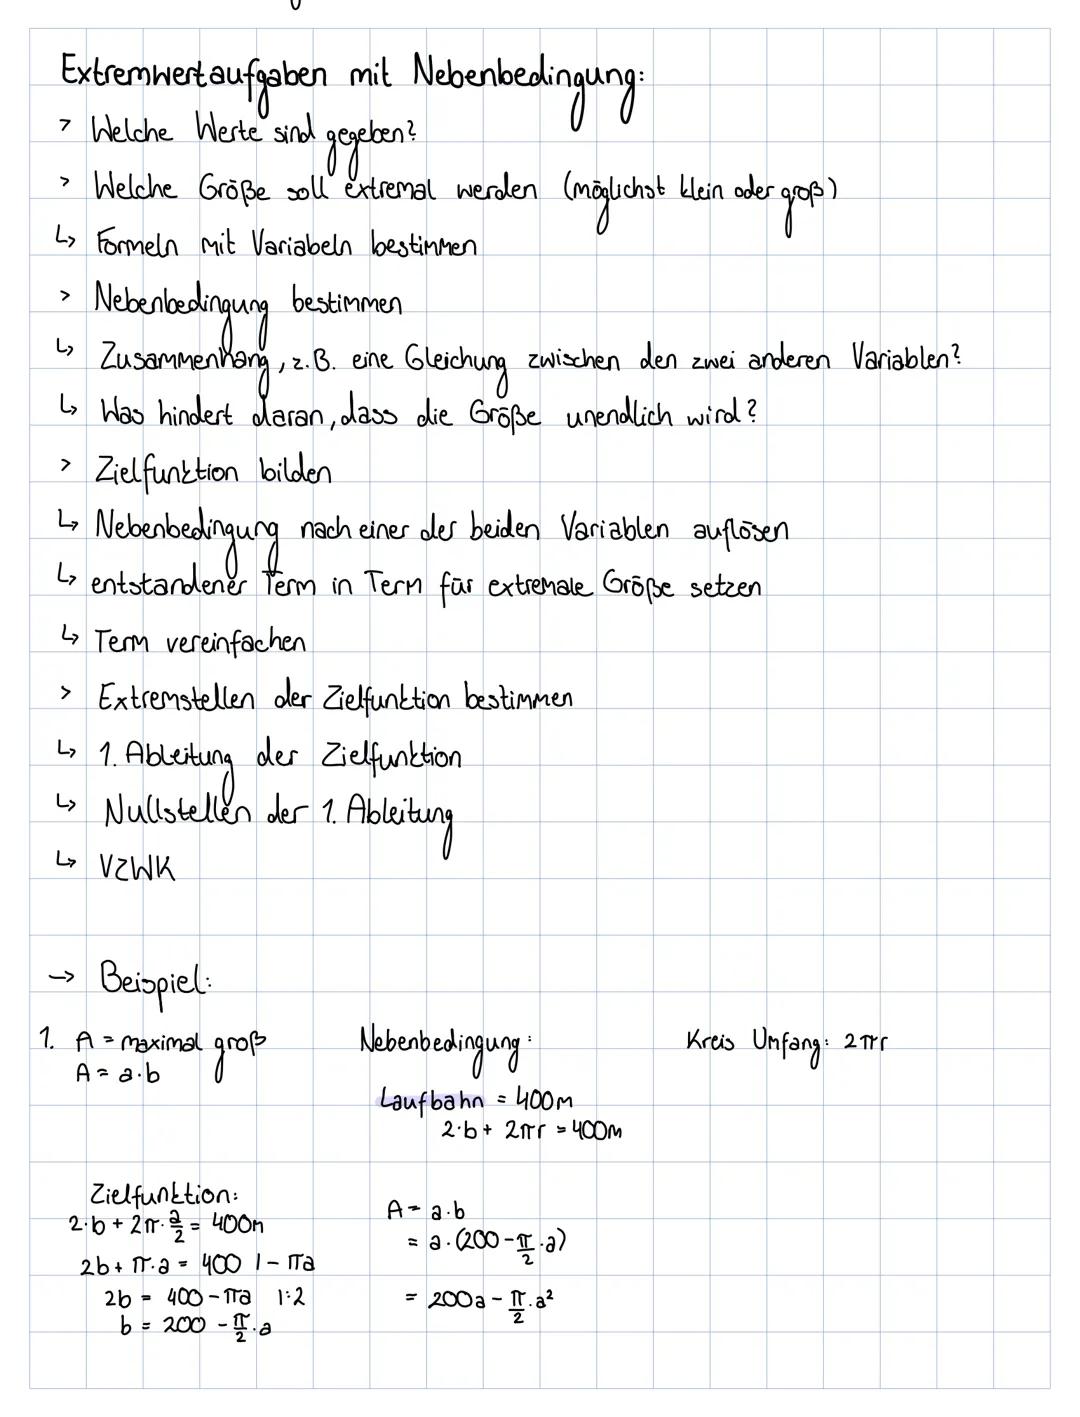 Extremwertaufgaben mit Nebenbedingung:
> Welche Werte sind gegeben?
> Welche Größe soll extremal werden (möglichst klein oder groß)
↳ Formeln mit Variabeln bestimmen
> Nebenbedingung bestimmen
↳ Zusammenhang, z.B. eine Gleichung zwischen den zwei anderen Variablen?
↳ Was hindert daran, dass die Größe unendlich wird?
> Zielfunktion bilden
↳ Nebenbedingung nach einer der beiden Variablen auflösen
↳ entstandener Term in Term für extremale Größe setzen
↳ Term vereinfachen
> Extremstellen der Zielfunktion bestimmen
↳ 1. Ableitung der Zielfunktion
↳ Nullstellen der 1. Ableitung
↳ VZWK
→ Beispiel:
1. A = maximal groß
A = a·b
Nebenbedingung:
Laufbahn = 400m
2·b + 2πr = 400m
Kreis Umfang: 2πr
Zielfunktion:
2·b + 2π·a/2 = 400m
2b + π·a = 400 | - πa
2b = 400 - πa | :2
b = 200 - π/2·a
A = a·b
= a·(200 - π/2·a)
= 200a - π/2·a²